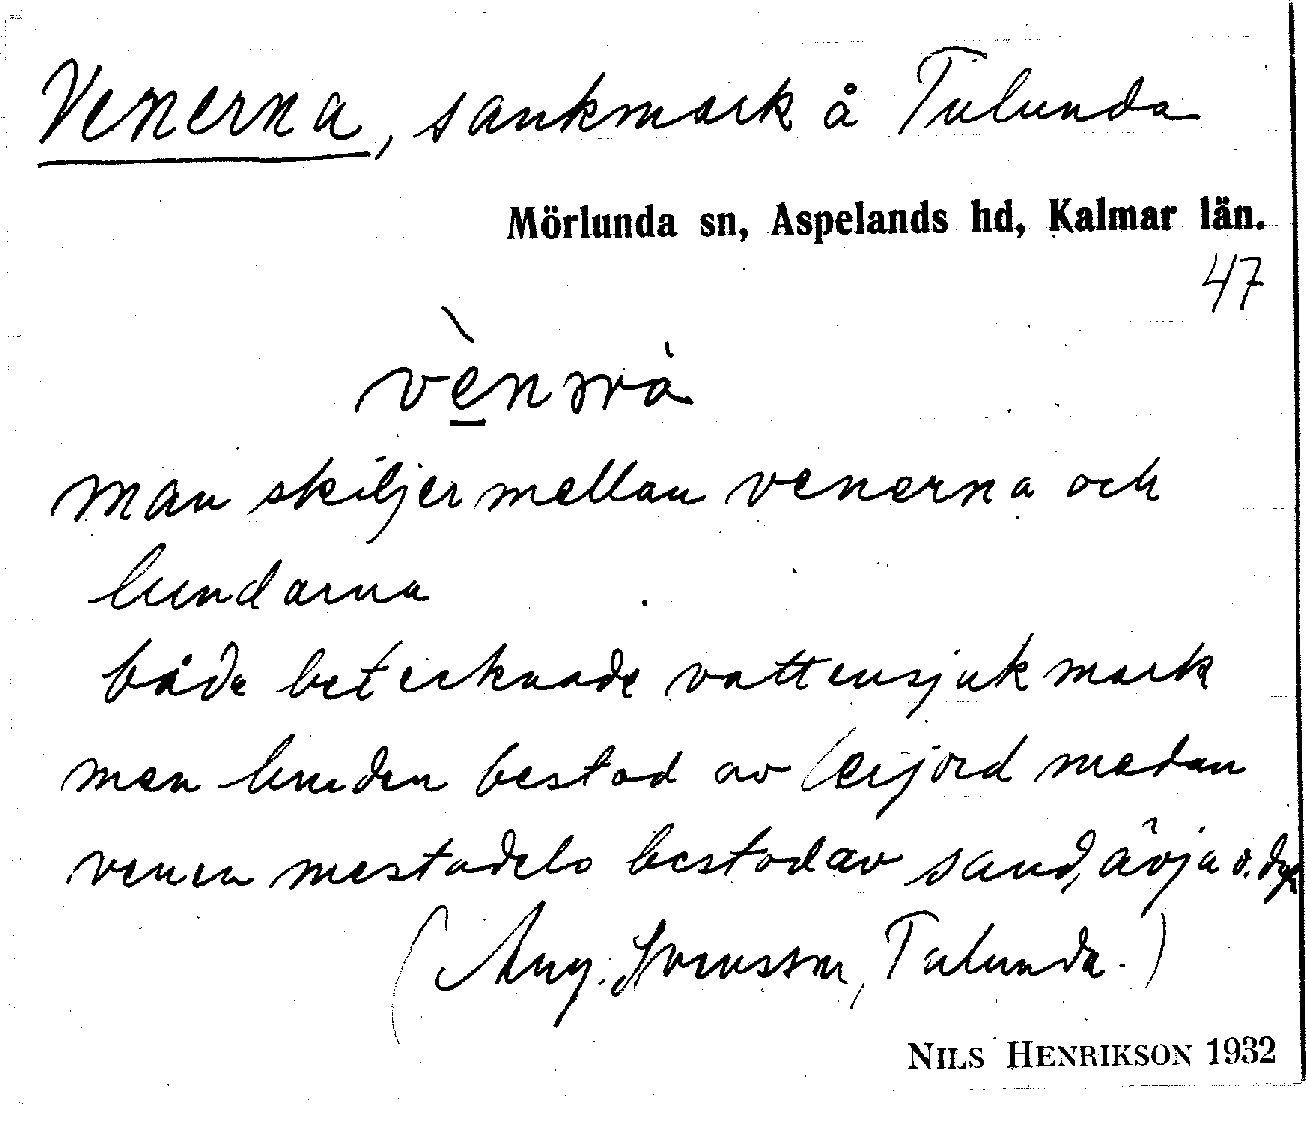 Venerna, sankmark å Tulunda
Mörlunda sn, Aspelands hd, Kalmar län.
47
man skiljer mellan venerna och
lundarna
båda betecknade vattensjuk mark
men lunden bestod av lerjord medan
venen mestadels bestod av sand, ävja o. dyl
(Aug. Svensson, Tulunda.)
NILS HENRIKSON 1932